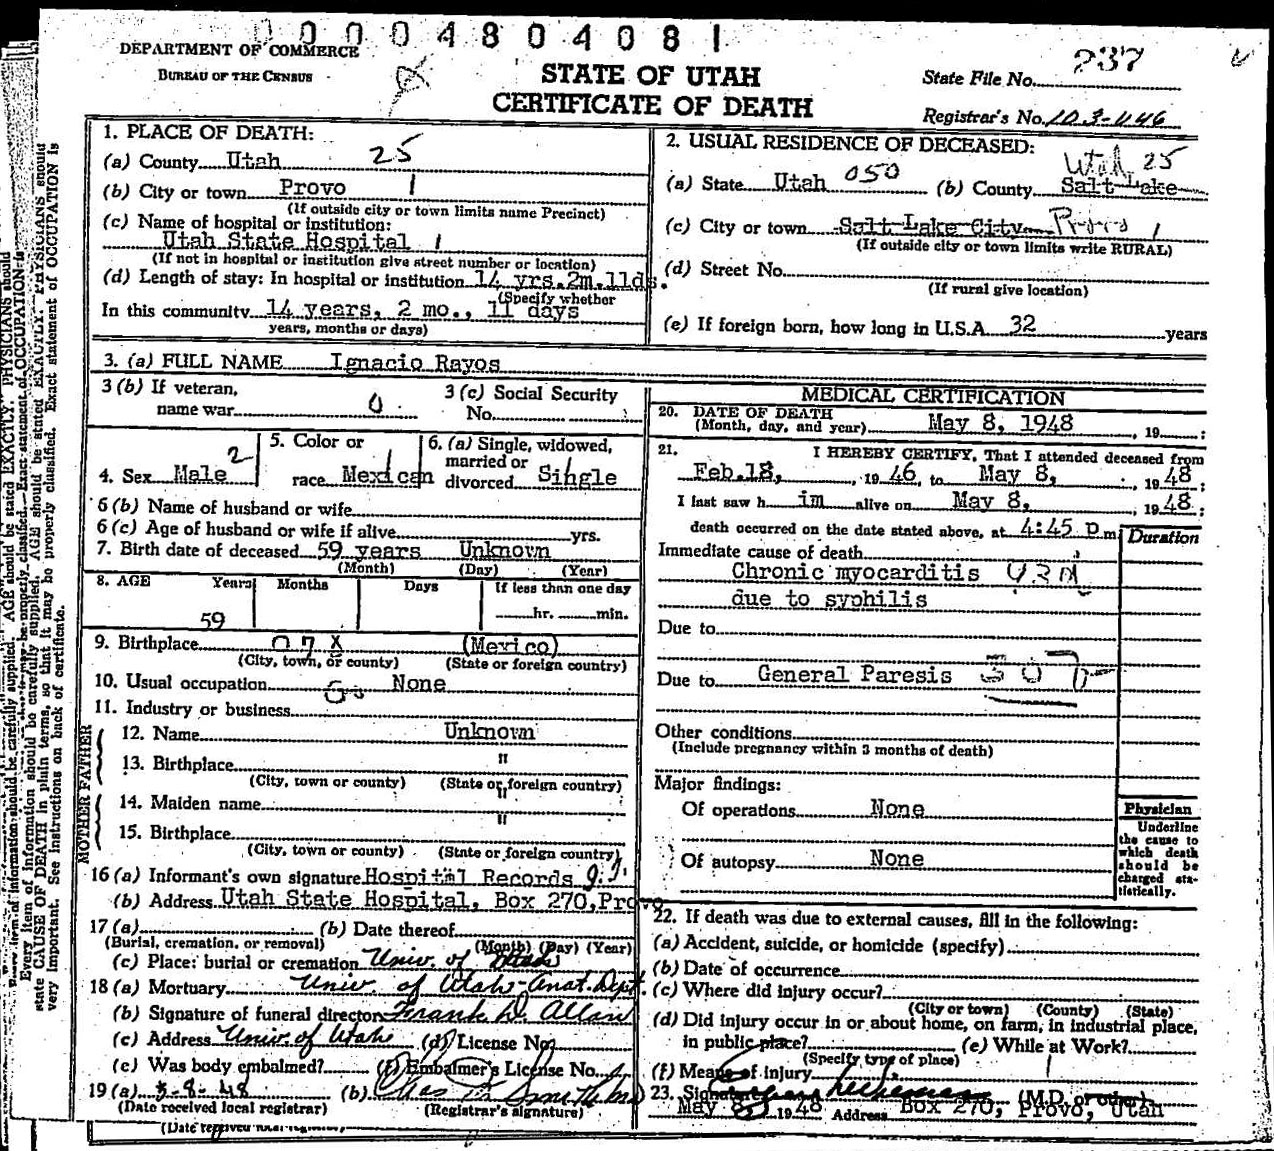 00004804081
DEPARTMENT OF COMMERCE
BUREAU OF THE CENSUS
STATE OF UTAH
CERTIFICATE OF DEATH
State File No. 237
Registrar's No. 103-1146
1. PLACE OF DEATH:
(a) County Utah 25
(b) City or town Provo 1
(If outside city or town limits name Precinct)
(c) Name of hospital or institution:
Utah State Hospital 1
(If not in hospital or institution give street number or location)
(d) Length of stay: In hospital or institution 14 yrs.2m.11ds.
(Specify whether
In this community 14 years, 2 mo., 11 days
years, months or days)
2. USUAL RESIDENCE OF DECEASED:
Utah 25
(a) State Utah 050 (b) County Salt Lake
(c) City or town Salt Lake City Provo 1
(If outside city or town limits write RURAL)
(d) Street No.
(If rural give location)
(e) If foreign born, how long in U.S.A 32 years
3. (a) FULL NAME Ignacio Rayos
3 (b) If veteran,
name war 0
3 (c) Social Security
No.
4. Sex Male 2
5. Color or
race Mexican
6. (a) Single, widowed,
married or
divorced Single
6 (b) Name of husband or wife
6 (c) Age of husband or wife if alive yrs.
7. Birth date of deceased 59 years Unknown
(Month) (Day) (Year)
8. AGE Years Months Days If less than one day
59 hr. min.
9. Birthplace 07X (Mexico)
(City, town, or county) (State or foreign country)
10. Usual occupation None
11. Industry or business
FATHER
12. Name Unknown
13. Birthplace "
(City, town or county) (State or foreign country)
MOTHER
14. Maiden name "
15. Birthplace "
(City, town or county) (State or foreign country)
16 (a) Informant's own signature Hospital Records
(b) Address Utah State Hospital, Box 270, Provo
17 (a) (b) Date thereof
(Burial, cremation, or removal) (Month) (Day) (Year)
(c) Place: burial or cremation Univ. of Utah
18 (a) Mortuary Univ. of Utah-Anat. Dept.
(b) Signature of funeral director Frank D. Allan
(c) Address Univ. of Utah (d) License No.
(e) Was body embalmed? (f) Embalmer's License No.
19 (a) 5-8-48 (b)
(Date received local registrar) (Registrar's signature)
(Date received local registrar)
MEDICAL CERTIFICATION
20. DATE OF DEATH
(Month, day, and year) May 8, 1948, 19
21. I HEREBY CERTIFY, That I attended deceased from
Feb.18, 1946, to May 8, 1948;
I last saw him alive on May 8, 1948;
death occurred on the date stated above, at 4:45 p.m
Duration
Immediate cause of death
Chronic myocarditis
due to syphilis
Due to
Due to General Paresis
Other conditions
(Include pregnancy within 3 months of death)
Major findings:
Of operations None
Of autopsy None
Physician
Underline
the cause to
which death
should be
charged sta-
tistically.
22. If death was due to external causes, fill in the following:
(a) Accident, suicide, or homicide (specify)
(b) Date of occurrence
(c) Where did injury occur?
(City or town) (County) (State)
(d) Did injury occur in or about home, on farm, in industrial place,
in public place? (e) While at Work?
(Specify type of place)
(f) Means of injury
23. Signature (M.D. or other)
May 8, 1948 Address Box 270, Provo, Utah
Every item of information should be carefully supplied. AGE should be stated EXACTLY. PHYSICIANS should
state CAUSE OF DEATH in plain terms, so that it may be properly classified. Exact statement of OCCUPATION is
very important. See instructions on back of certificate.